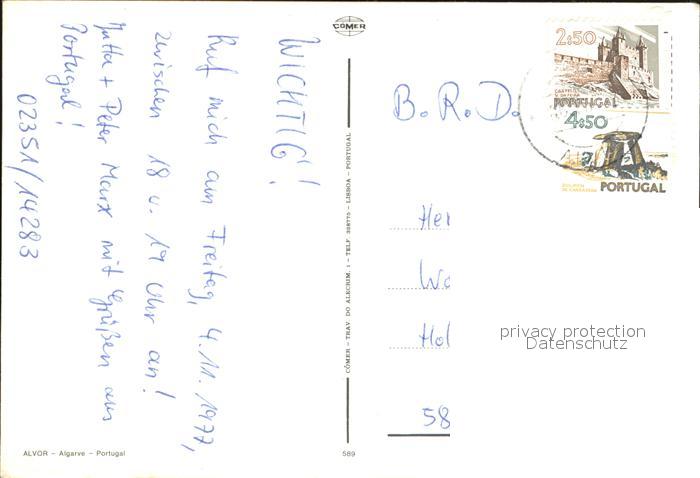 WICHTIG!
Ruf mich am Freitag, 4.11.1977,
zwischen 18 u. 19 Uhr an!
Jutta + Peter Marx mit Grüßen aus
Portugal!
02351/14283
CÓMER
CÓMER - TRAV. DO ALECRIM, 1 - TELF. 328775 - LISBOA - PORTUGAL
2:50
PORTUGAL
4:50
PORTUGAL
B.R.D.
Her
Wo
Hol
58
privacy protection
Datenschutz
ALVOR - Algarve - Portugal
589